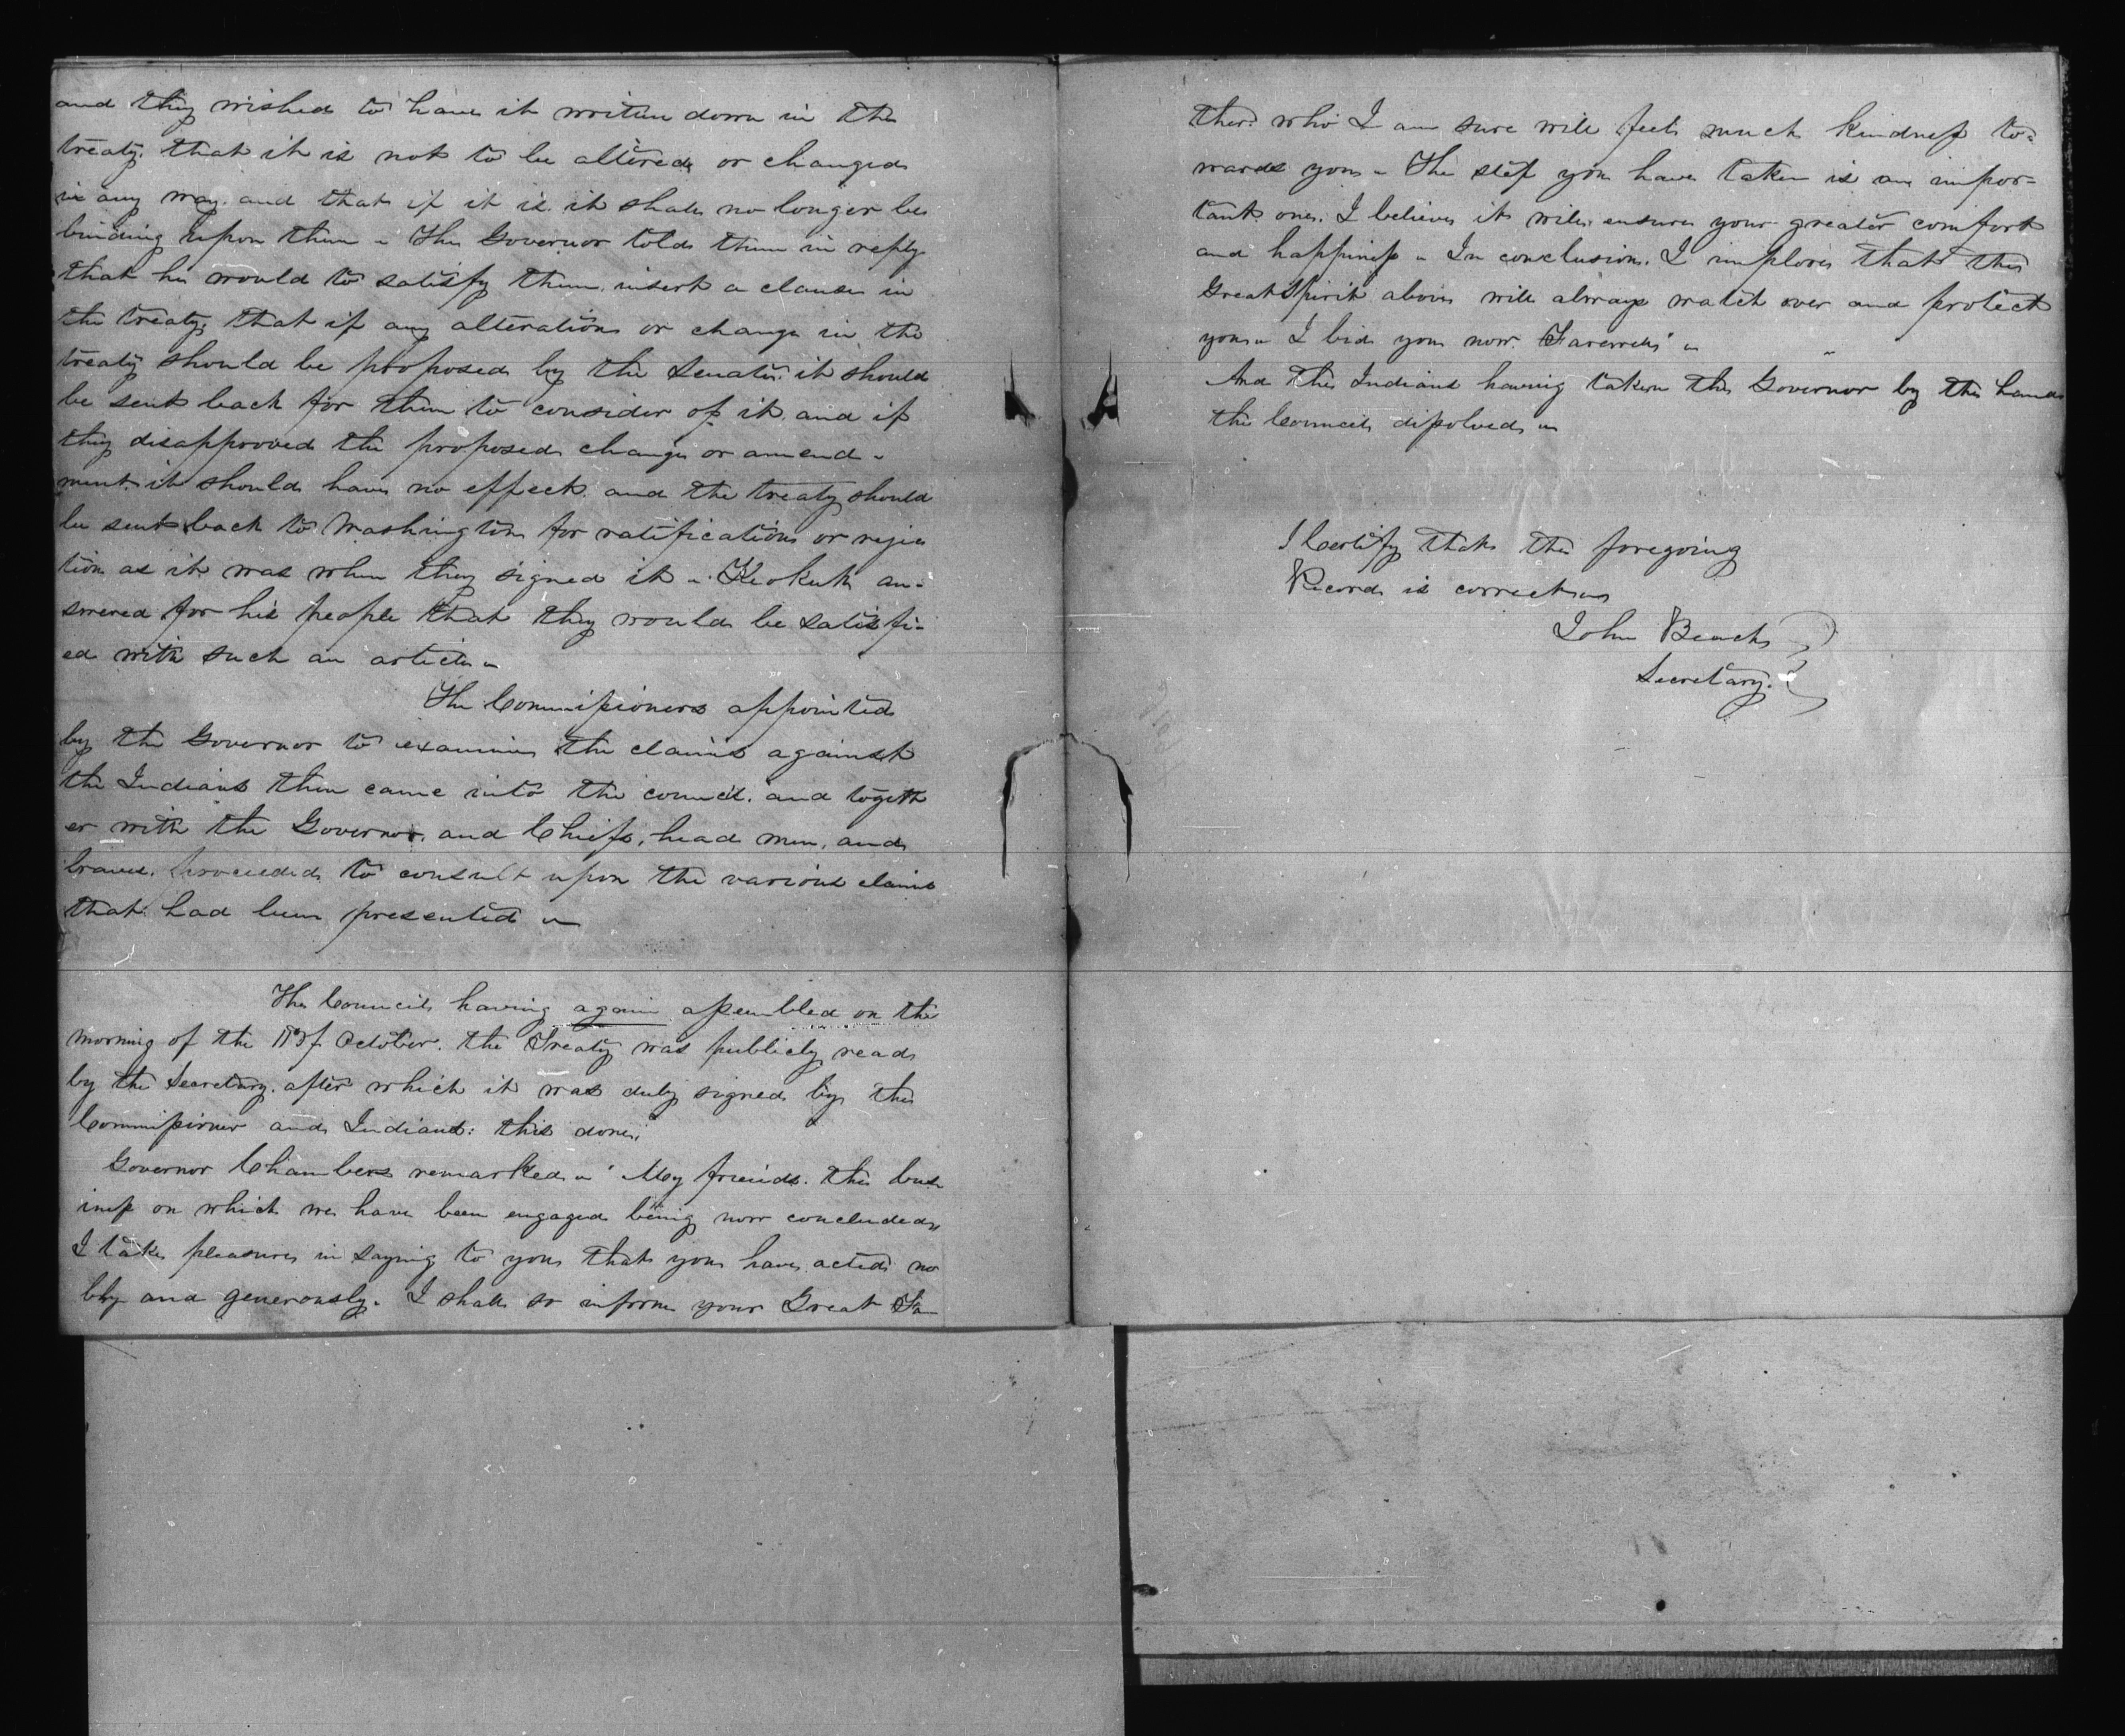 and they wished to have it written down in the
treaty. that it is not to be altered or changed
in any way. and that if it is. it shall no longer be
binding upon them - The Governor told them in reply
that he would to satisfy them. insert a clause in
the treaty; that if any alteration or change in the
treaty should be proposed by the Senate. it should
be sent back for them to consider of it. and if
they disapproved the proposed change or amend-
ment. it should have no effect. and the treaty should
be sent back to Washington for ratification or rejec
tion as it was when they signed it - Keokuk an-
swered for his people that they would be satisfi-
ed with such an article -
The Commissioners appointed
by the Governor to examine the claims against
the Indians then came into the council. and togeth
er with the Governor, and Chiefs, head men, and
braves. proceeded to consult upon the various claims
that had been presented -
The Council having again assembled on the
morning of the of October. the Treaty was publicly read
by the Secretary. after which it was duly signed by the
Commissioner and Indians: this done;
Governor Chambers remarked - "My friends. the bus
iness on which we have been engaged being now concluded,
I take pleasure in saying to you that you have acted no
bly and generously. I shall so inform your Great Fa
ther. who I am sure will feel much kindness to=
wards you - The step you have taken is an impor=
tant one. I believe it will ensure your greater comfort
and happiness - In conclusion. I implore that the
Great Spirit above will always watch over and protect
you - I bid you now. Farewell" -
And the Indians having taken the Governor by the hand
the Council dissolved -
I Certify that the foregoing
Record is correct -
John Beach
Secretary.